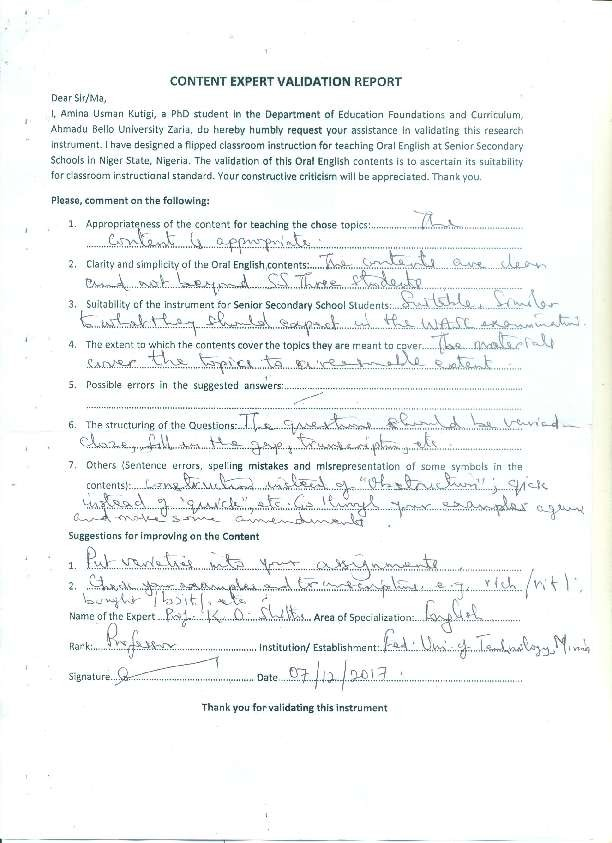 CONTENT EXPERT VALIDATION REPORT
Dear Sir/Ma,
I, Amina Usman Kutigi, a PhD student in the Department of Education Foundations and Curriculum,
Ahmadu Bello University Zaria, do hereby humbly request your assistance in validating this research
instrument. I have designed a flipped classroom instruction for teaching Oral English at Senior Secondary
Schools in Niger State, Nigeria. The validation of this Oral English contents is to ascertain its suitability
for classroom instructional standard. Your constructive criticism will be appreciated. Thank you.
Please, comment on the following:
1. Appropriateness of the content for teaching the chose topics: The
content is appropriate.
2. Clarity and simplicity of the Oral English contents: The contents are clear
and not beyond SS Three students
3. Suitability of the instrument for Senior Secondary School Students: Suitable. Similar
to what they should expect in the WASC examination.
4. The extent to which the contents cover the topics they are meant to cover The materials
cover the topics to a reasonable extent
5. Possible errors in the suggested answers:
6. The structuring of the Questions: The questions should be varied –
cloze, fill in the gap, transcription, etc.
7. Others (Sentence errors, spelling mistakes and misrepresentation of some symbols in the
contents): Construction instead of "Obstruction"; qick
instead of "quick", etc. Go through your examples again
and make some amendments
Suggestions for improving on the Content
1. Put varieties into your assignments
2. Check your examples and transcription e.g. rich
bought
Name of the Expert Prof. K. O. Area of Specialization: English
Rank: Professor Institution/ Establishment: Fed. Uni. of Technology, Minna
Signature Date 07/12/2017
Thank you for validating this instrument